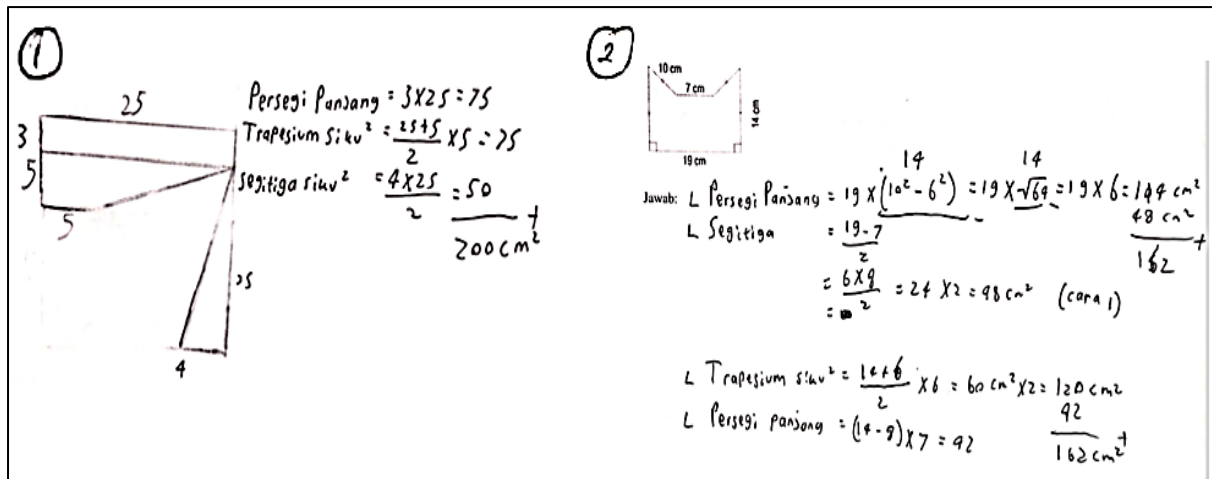 1
25
3
5
5
25
4
Persegi Panjang = 3x25 = 75
Trapesium siku² = 25+5/2 x5 = 75
segitiga siku² = 4x25/2 = 50 +
200 cm²
2
10 cm
7 cm
14 cm
19 cm
14 14
Jawab: L Persegi Panjang = 19 x (10² - 6²) = 19 x √64 = 19 x 6 = 114 cm²
48 cm² +
162
L Segitiga = 19-7/2
= 6x8/2 = 24 x2 = 48 cm² (cara 1)
=
L Trapesium siku² = 14+6/2 x6 = 60 cm² x2 = 120 cm²
L Persegi panjang = (14-8) x7 = 42
42 +
162 cm²